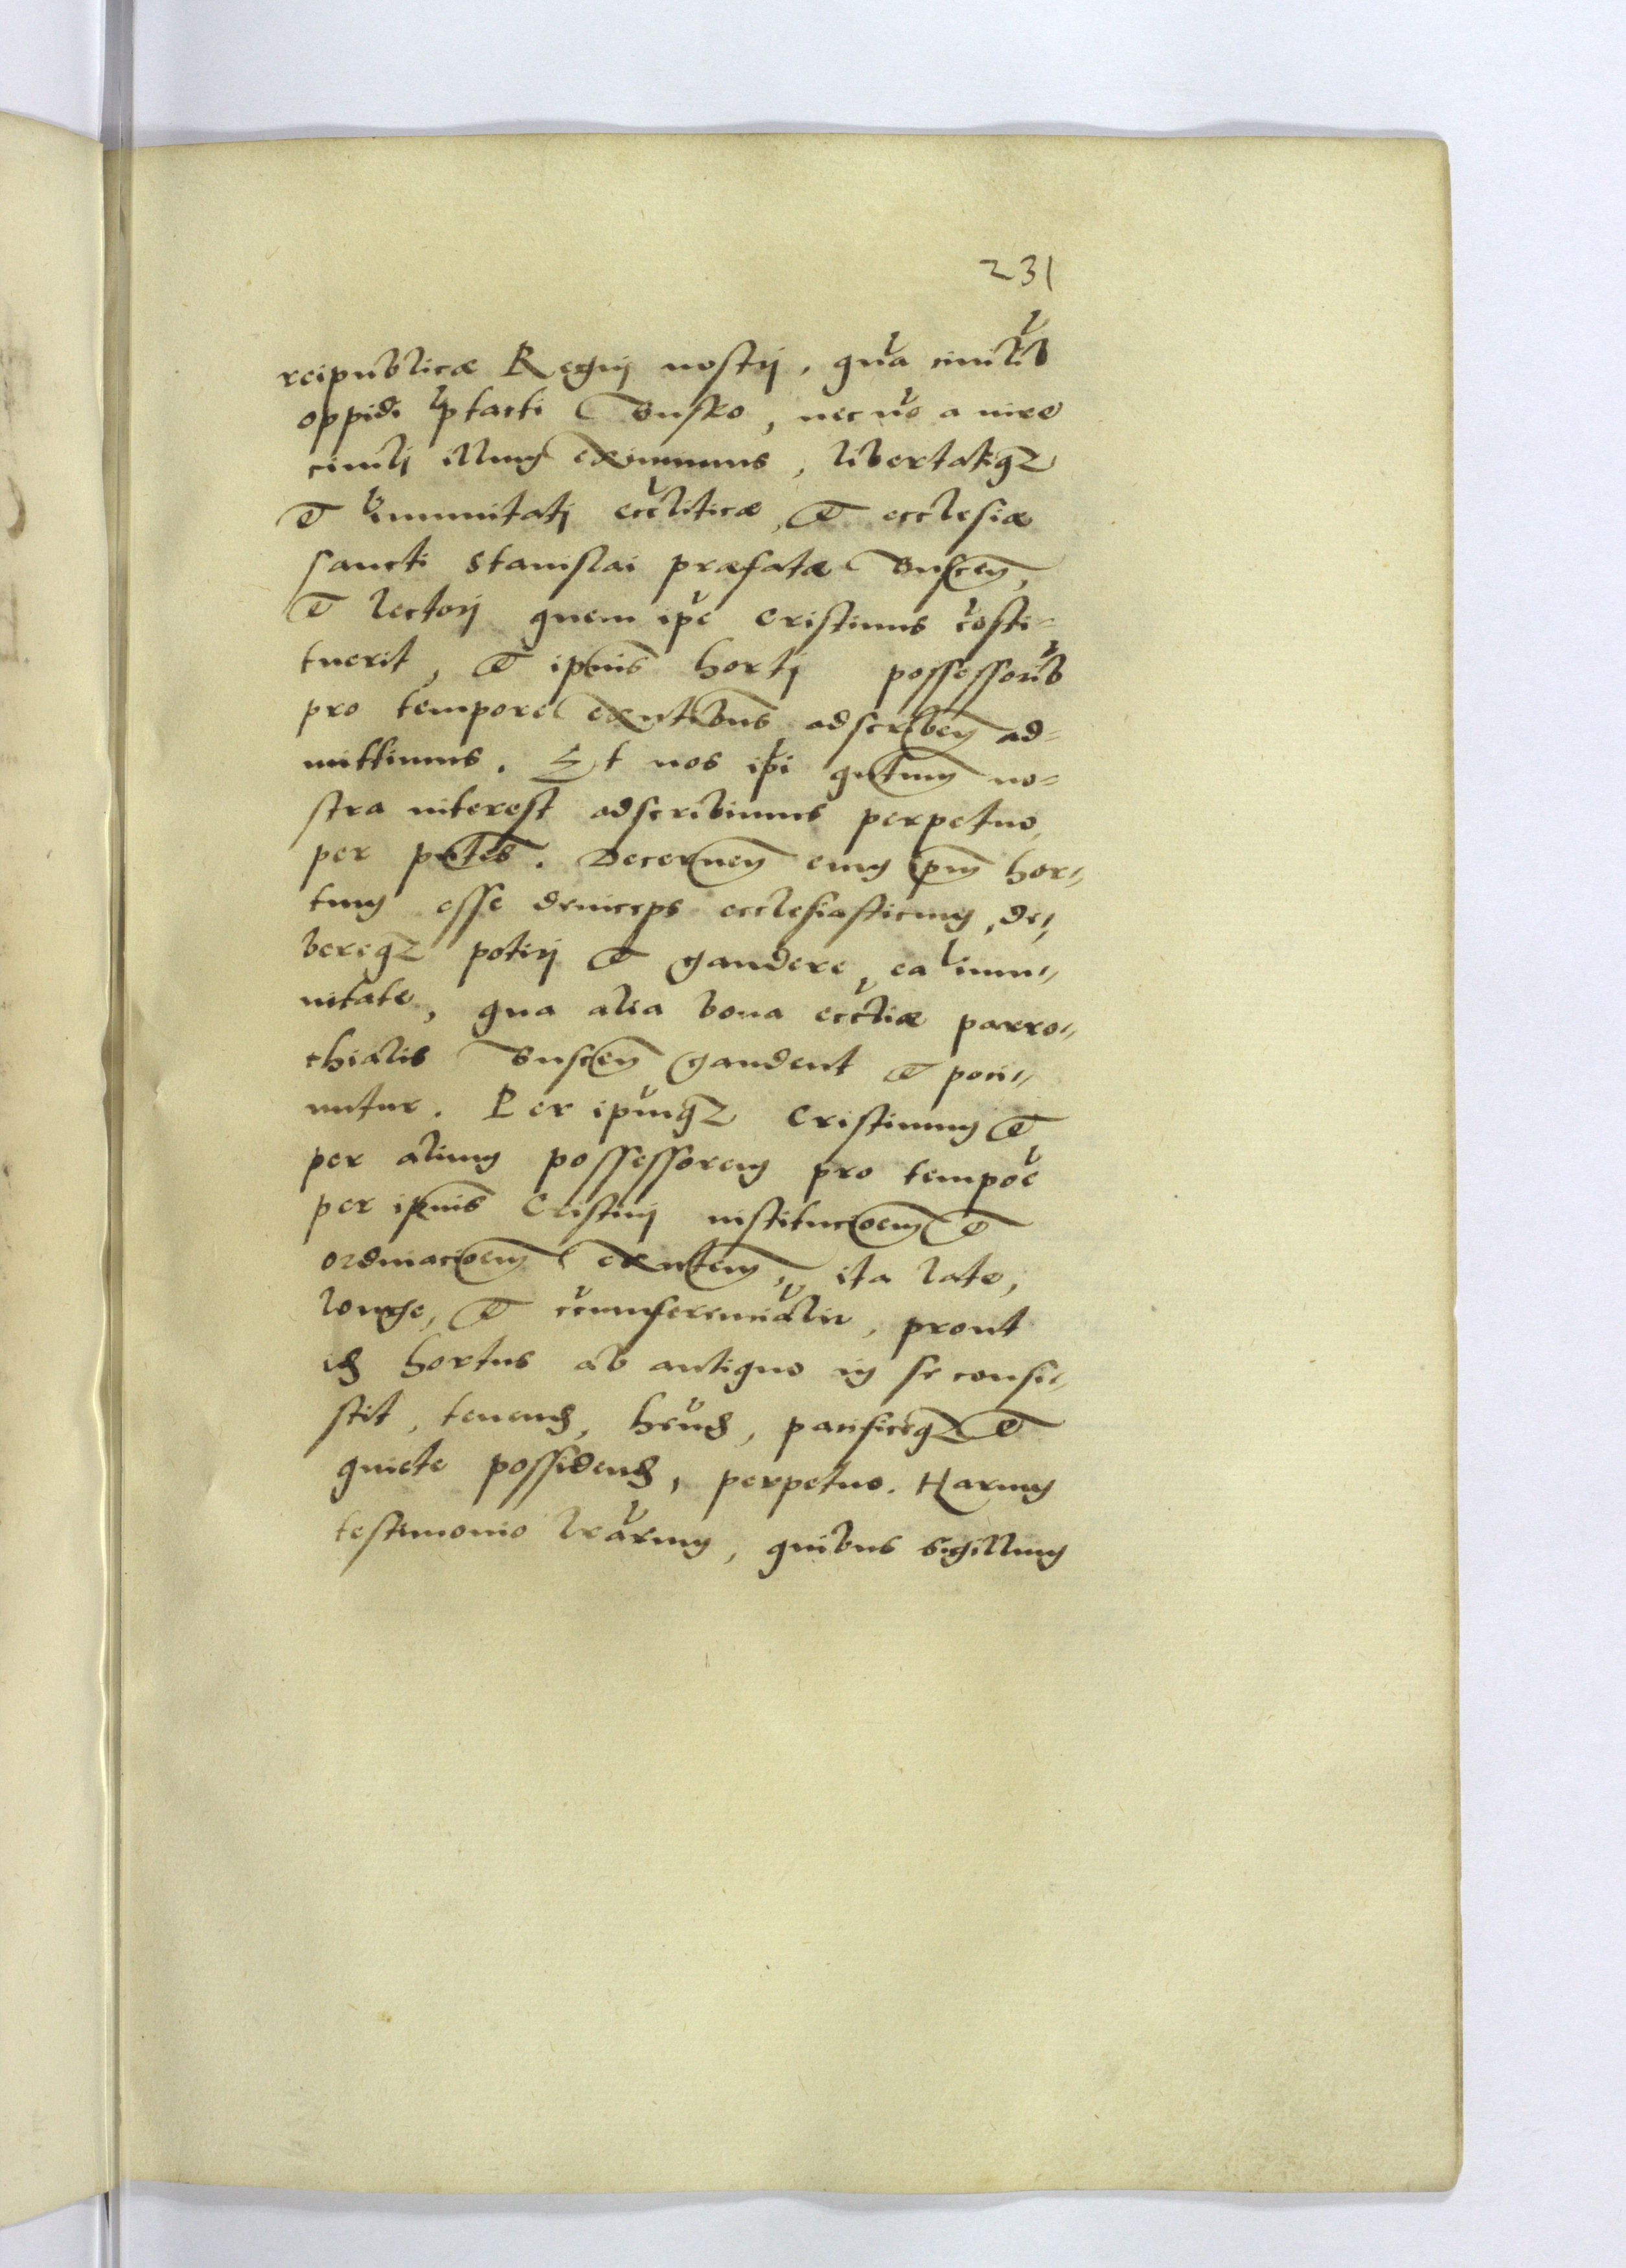 231
reipublicæ Regnj nostrj, qua ciuilib
oppidi ptacti Busko, nec no a iure
ciuilj illum eximimus, libertatiqz
et immunitatj eccliticæ, et ecclesiæ
sancti Stanislai præfatæ Buscen,
et lectorj quem ipe Cristinus costi-
tuerit, et ipius hortj possessorib
pro tempore exntibus adscriben ad-
mittimus. Et nos ipi qntum no-
stra interest adscribimus perpetuo
per pntes. Decernen eum ipm hor-
tum esse deinceps ecclesiasticum, de-
bereqz potirj et gaudere, ea immu-
nitate, qua alia bona eccliæ parro-
chialis Buscen gaudent et poti-
untur. Per ipumqz Cristinum et
per alium possessorem pro tempoe
per ipius Cristinj institucoem et
ordinacoem exntem, ita late,
longe, et circumferencialir, prout
id hortus ab antiquo in se consi-
stit, tenend, hnd, pacificeqz et
quiete possidend, perpetuo. Harum
testimonio lrarum, quibus sigillum